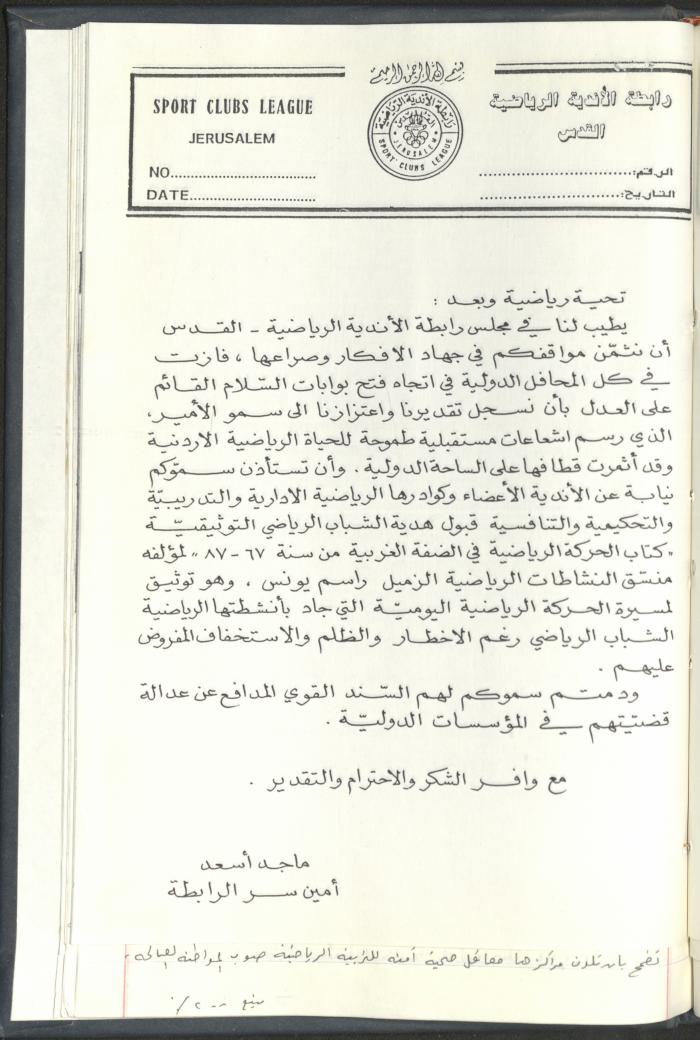 بسم الله الرحمن الرحيم
SPORT CLUBS LEAGUE
JERUSALEM
NO
DATE
رابطة الأندية الرياضية
القدس
SPORT CLUBS LEAGUE
JERUSALEM
رابطة الأندية الرياضية
القدس
الرقم:
التاريخ:
تحية رياضية وبعد :
يطيب لنا في مجلس رابطة الأندية الرياضية - القدس
أن نثمّن مواقفكم في جهاد الافكار وصراعها ، فازت
في كل المحافل الدولية في اتجاه فتح بوابات السّلام القائم
على العدل بأن نسجل تقديرنا واعتزازنا الى سمو الأمير،
الذي رسم اشعاعات مستقبلية طموحة للحياة الرياضية الاردنية
وقد أثمرت قطافها على الساحة الدولية . وأن تستأذن سموّكم
نيابة عن الأندية الأعضاء وكوادرها الرياضية الادارية والتدريبيّة
والتحكيمية والتنافسية قبول هدية الشباب الرياضي التوثيقيّة
"كتاب الحركة الرياضية في الضفة الغربية من سنة ٦٧ - ٨٧" لمؤلفه
منسّق النشاطات الرياضية الزميل راسم يونس ، وهو توثيق
لمسيرة الحركة الرياضية اليوميّة التي جاد بأنشطتها الرياضية
الشباب الرياضي رغم الاخطار والظلم والاستخفاف المفروض
عليهم .
ودمتم سموكم لهم السّند القوي المدافع عن عدالة
قضيّتهم في المؤسسات الدوليّة .
مع وافر الشكر والاحترام والتقدير .
ماجد أسعد
أمين سر الرابطة
تطمح بان تكون مراكزها معاقل صحية آمنه للتربية الرياضيّة صوب المواطنه الصالحه
يتبع